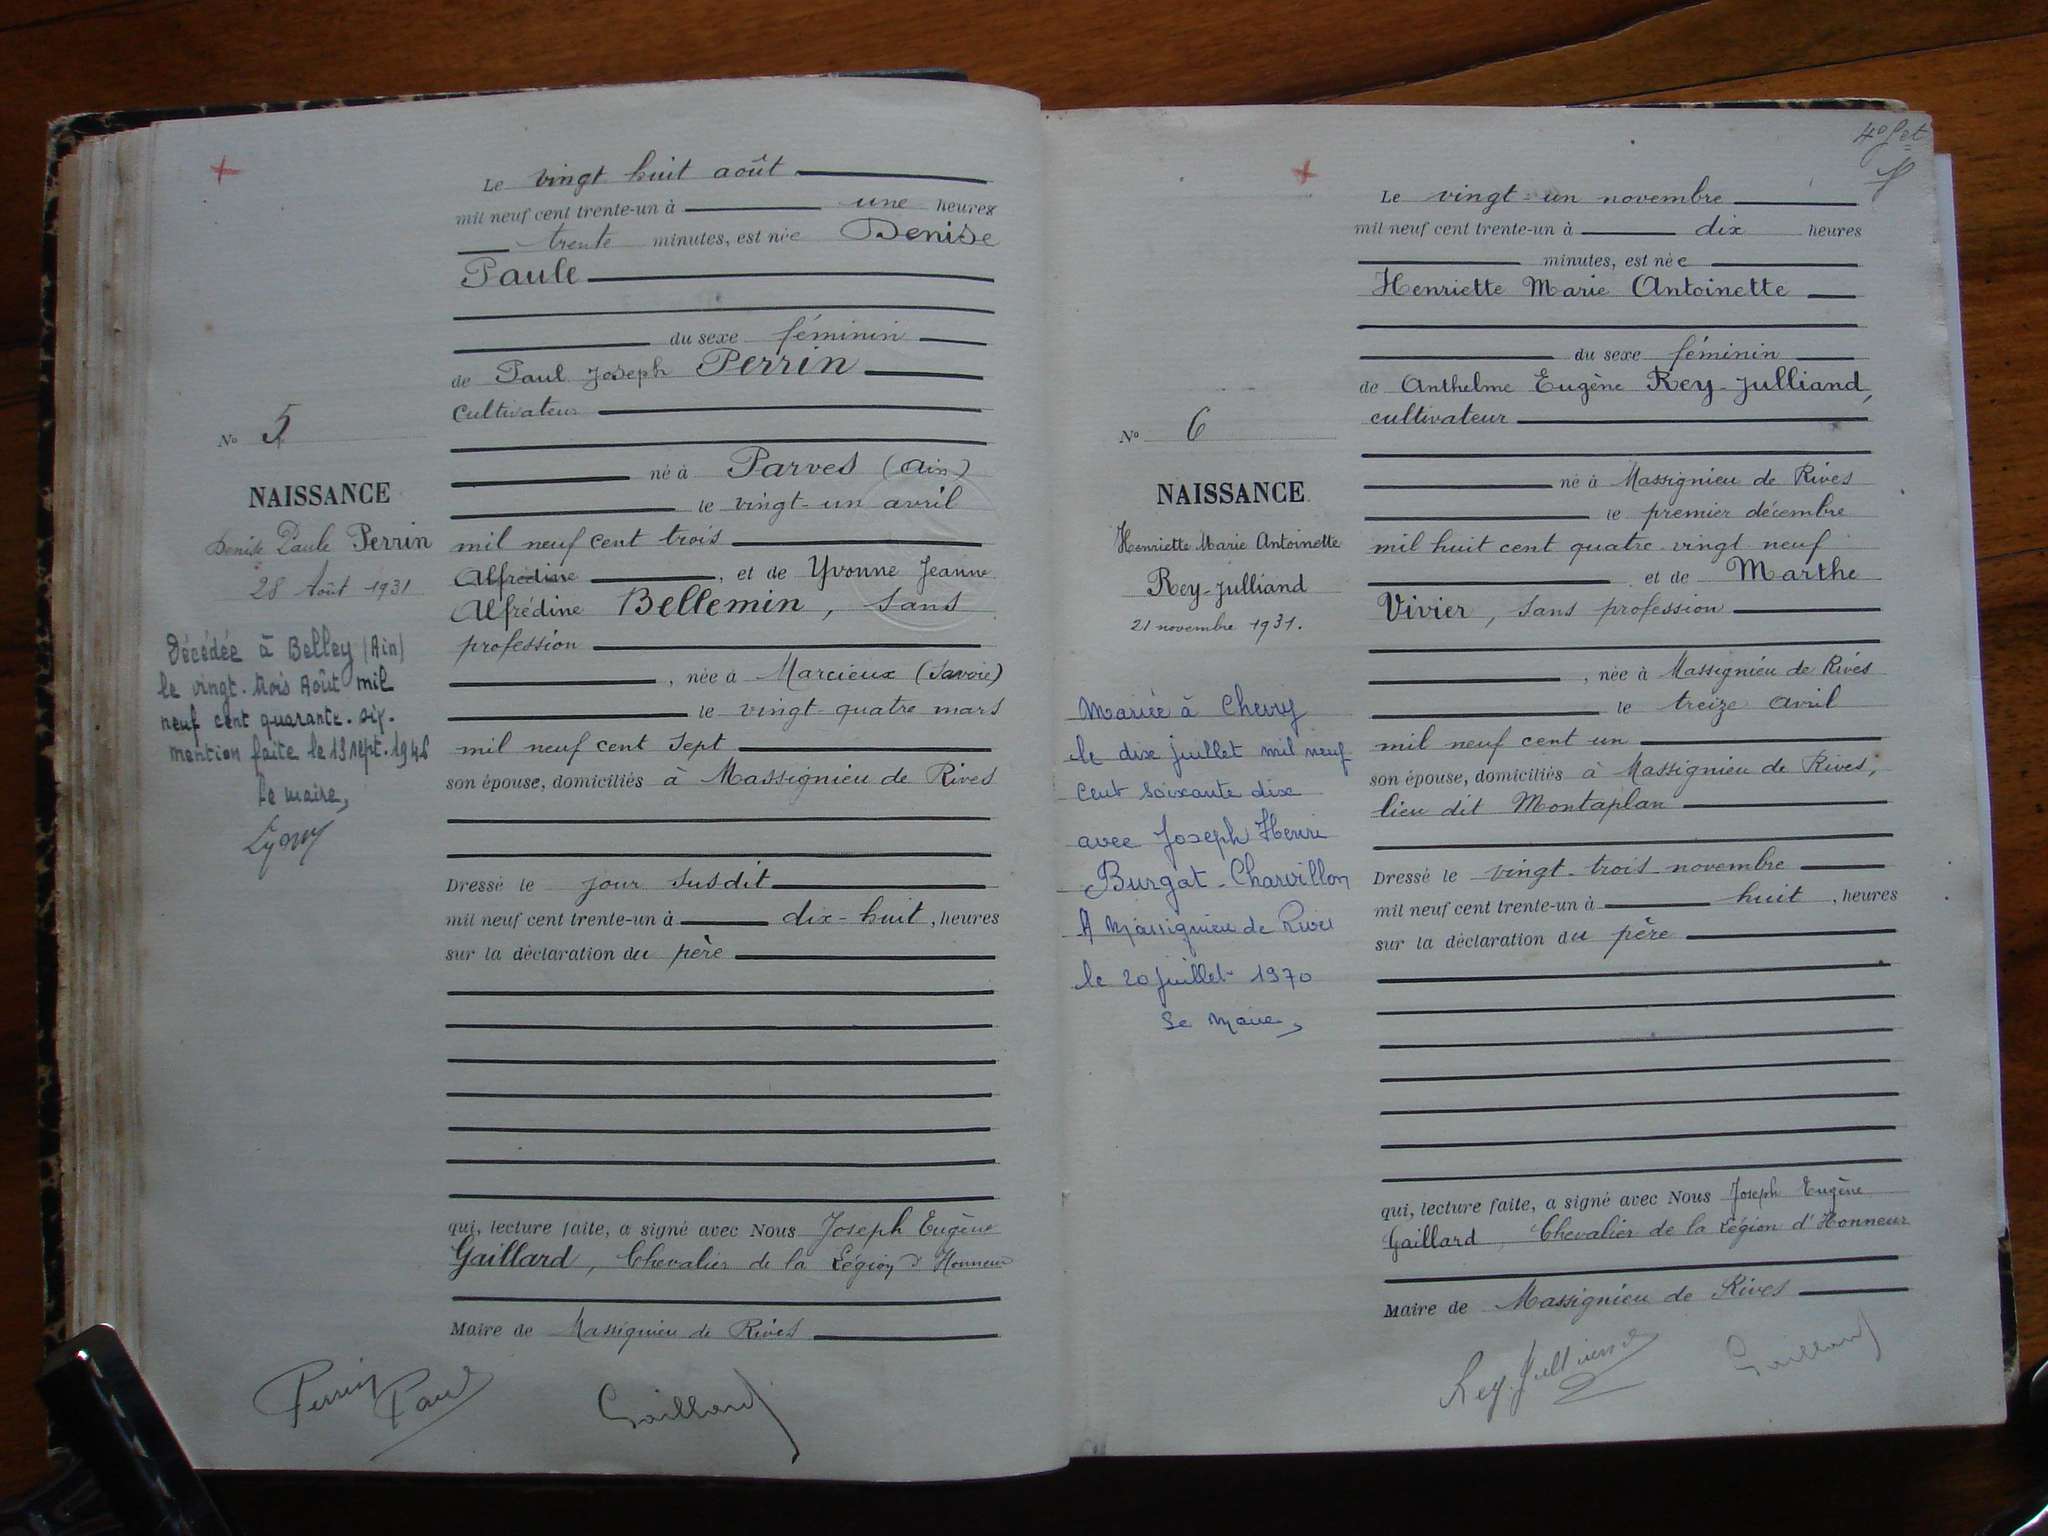 Le vingt huit août
mil neuf cent trente-un à une heures
trente minutes, est née Denise
Paule
du sexe féminin
de Paul Joseph Perrin
cultivateur
né à Parves (Ain)
le vingt-un avril
mil neuf cent trois
Alfrédine, et de Yvonne Jeanne
Alfrédine Bellemin, sans
profession
, née à Marcieux (Savoie)
le vingt-quatre mars
mil neuf cent sept
son épouse, domiciliés à Massignieu de Rives
Dressé le jour susdit
mil neuf cent trente-un à dix-huit, heures
sur la déclaration du père
qui, lecture faite, a signé avec Nous Joseph Eugène
Gaillard, Chevalier de la Légion d'Honneur
Maire de Massignieu de Rives
Perrin Paul Gaillard
No 5
NAISSANCE
Denise Paule Perrin
28 Août 1931
Décédée à Belley (Ain)
le vingt-trois Août mil
neuf cent quarante-six.
mention faite le 13 sept. 1946
Le maire,
40
Le vingt-un novembre
mil neuf cent trente-un à dix heures
minutes, est née
Henriette Marie Antoinette
du sexe féminin
de Anthelme Eugène Rey-Julliand,
cultivateur
né à Massignieu de Rives
le premier décembre
mil huit cent quatre-vingt neuf
et de Marthe
Vivier, sans profession
, née à Massignieu de Rives
le treize avril
mil neuf cent un
son épouse, domiciliés à Massignieu de Rives,
lieu dit Montaplan
Dressé le vingt-trois novembre
mil neuf cent trente-un à huit, heures
sur la déclaration du père
qui, lecture faite, a signé avec Nous Joseph Eugène
Gaillard, Chevalier de la Légion d'Honneur
Maire de Massignieu de Rives
Rey-Julliand Gaillard
No 6
NAISSANCE
Henriette Marie Antoinette
Rey-Julliand
21 novembre 1931.
Mariée à Chevry
le dix juillet mil neuf
cent soixante dix
avec Joseph Henri
Burgat-Charvillon
A Massignieu de Rives
le 20 juillet 1970
Le Maire,